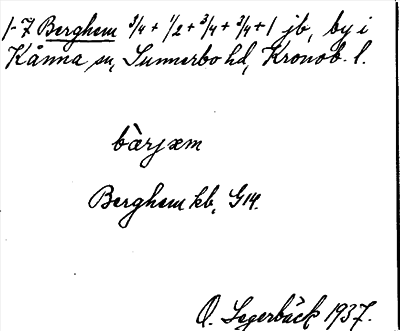 1-7 Berghem 3/4 + 1/2 + 3/4 + 3/4 + 1 jb, by i
Kånna sn, Sunnerbo hd, Kronob. l.
bàrjxm
Berghem kb, G14.
O. Lagerbäck 1937.